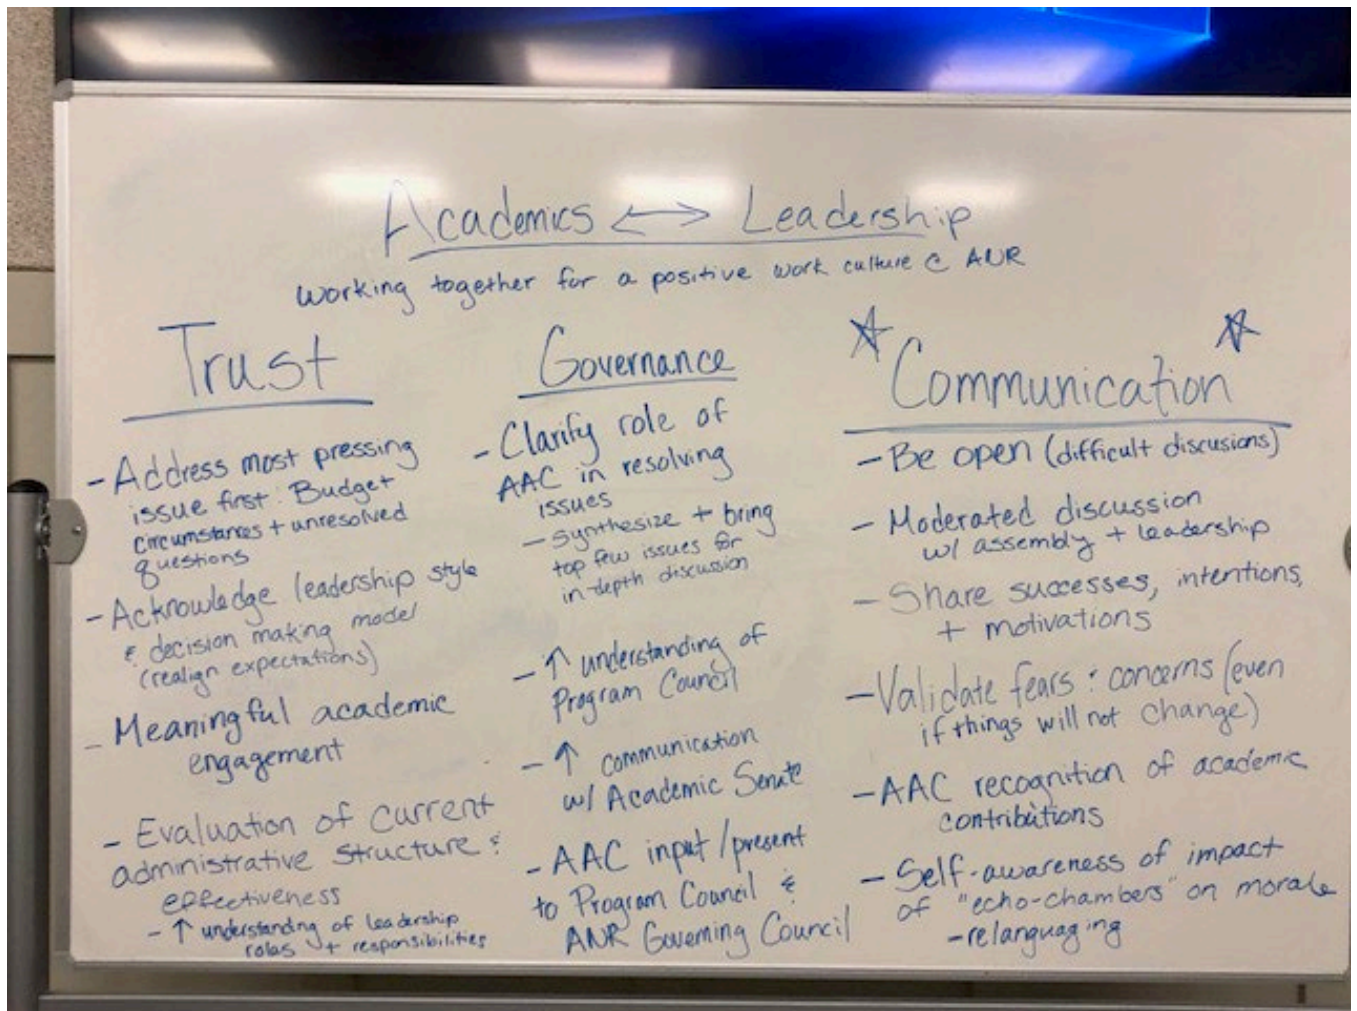 Academics ⟷ Leadership
Working together for a positive work culture @ ANR
Trust
- Address most pressing
issue first: Budget
circumstances + unresolved
questions
- Acknowledge leadership style
& decision making model
(realign expectations)
- Meaningful academic
engagement
- Evaluation of current
administrative structure &
effectiveness
- ↑ understanding of leadership
roles + responsibilities
Governance
- Clarify role of
AAC in resolving
issues
- Synthesize + bring
top few issues for
in-depth discussion
- ↑ understanding of
Program Council
- ↑ communication
w/ Academic Senate
- AAC input/present
to Program Council &
ANR Governing Council
☆ Communication ☆
- Be open (difficult discusions)
- Moderated discussion
w/ assembly + leadership
- Share successes, intentions,
+ motivations
- Validate fears & concerns (even
if things will not change)
- AAC recognition of academic
contributions
- Self-awareness of impact
of "echo-chambers" on morale
- relanguaging